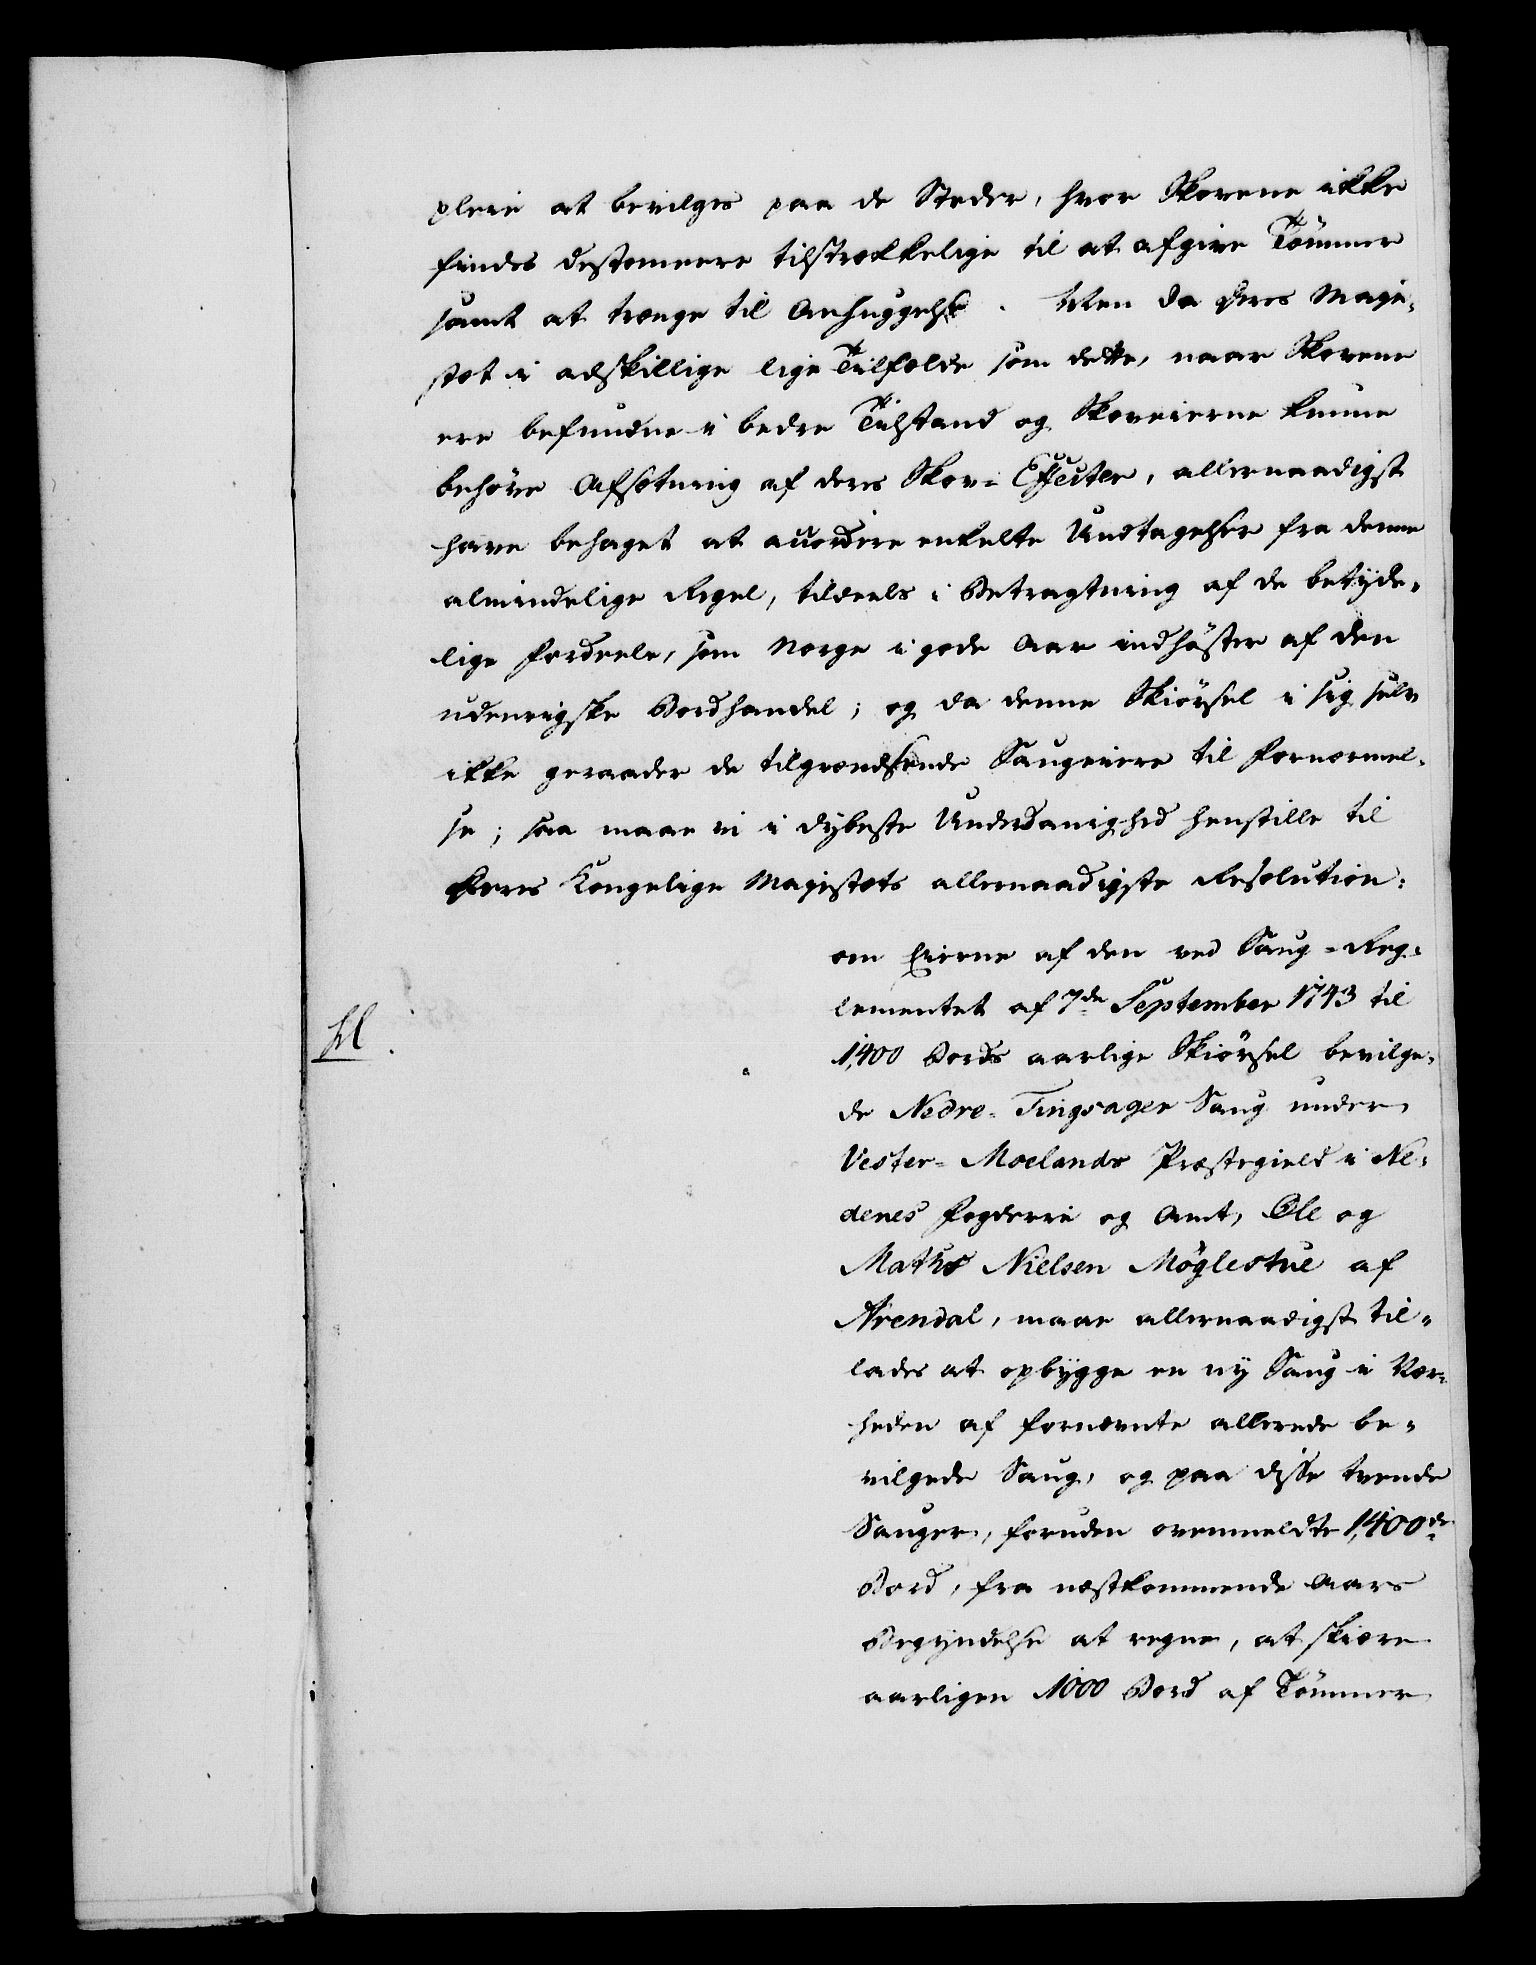 pleie at bevilges paa de Steder, hvor Skovene ikke
findes destomeere tilstrækkelige til at afgive Tömmer
samt at trænge til Ophuggelse. Men da Deres Maje-
stæt i adskillige lige Tilfælde som dette, naar Skovene
ere befundne i bedre Tilstand og Skoveierne kunne
behöve Afsætning af deres Skov-Effecter, allernaadigst
have behaget at accordere enkelte Undtagelser fra denne
almindelige Regel, tildeels i Betragtning af de betyde-
lige Fordeele, som Norge i gode Aar indhöster af den
udenrigske Bordhandel; og da denne Skiörsel i sig selv
ikke geraader de tilgrændsende Saugeiere til Fornærmel-
se; saa maae vi i dybeste Underdanighed henstille til
Deres Kongelige Majestæts allernaadigste Resolution:
om Eierne af den ved Saug-Reg-
lementet af 7de September 1743 til
1,400 Bords aarlige Skiörsel bevilge-
de Nedre-Tingsager Saug under
Vester-Moelands Præstegield i Ne-
denes Fogderie og Amt, Ole og
Mathis Nielsen Möglestue af
Arendal, maae allernaadigst til-
lades at opbygge en ny Saug i Nær-
heden af fornævnte allerede be-
vilgede Saug, og paa disse tvende
Sauger, foruden ovenmeldte 1,400de
Bord, fra næstkommende Aars
Begyndelse at regne, at skiære
aarligen 1000 Bord af Tömmer